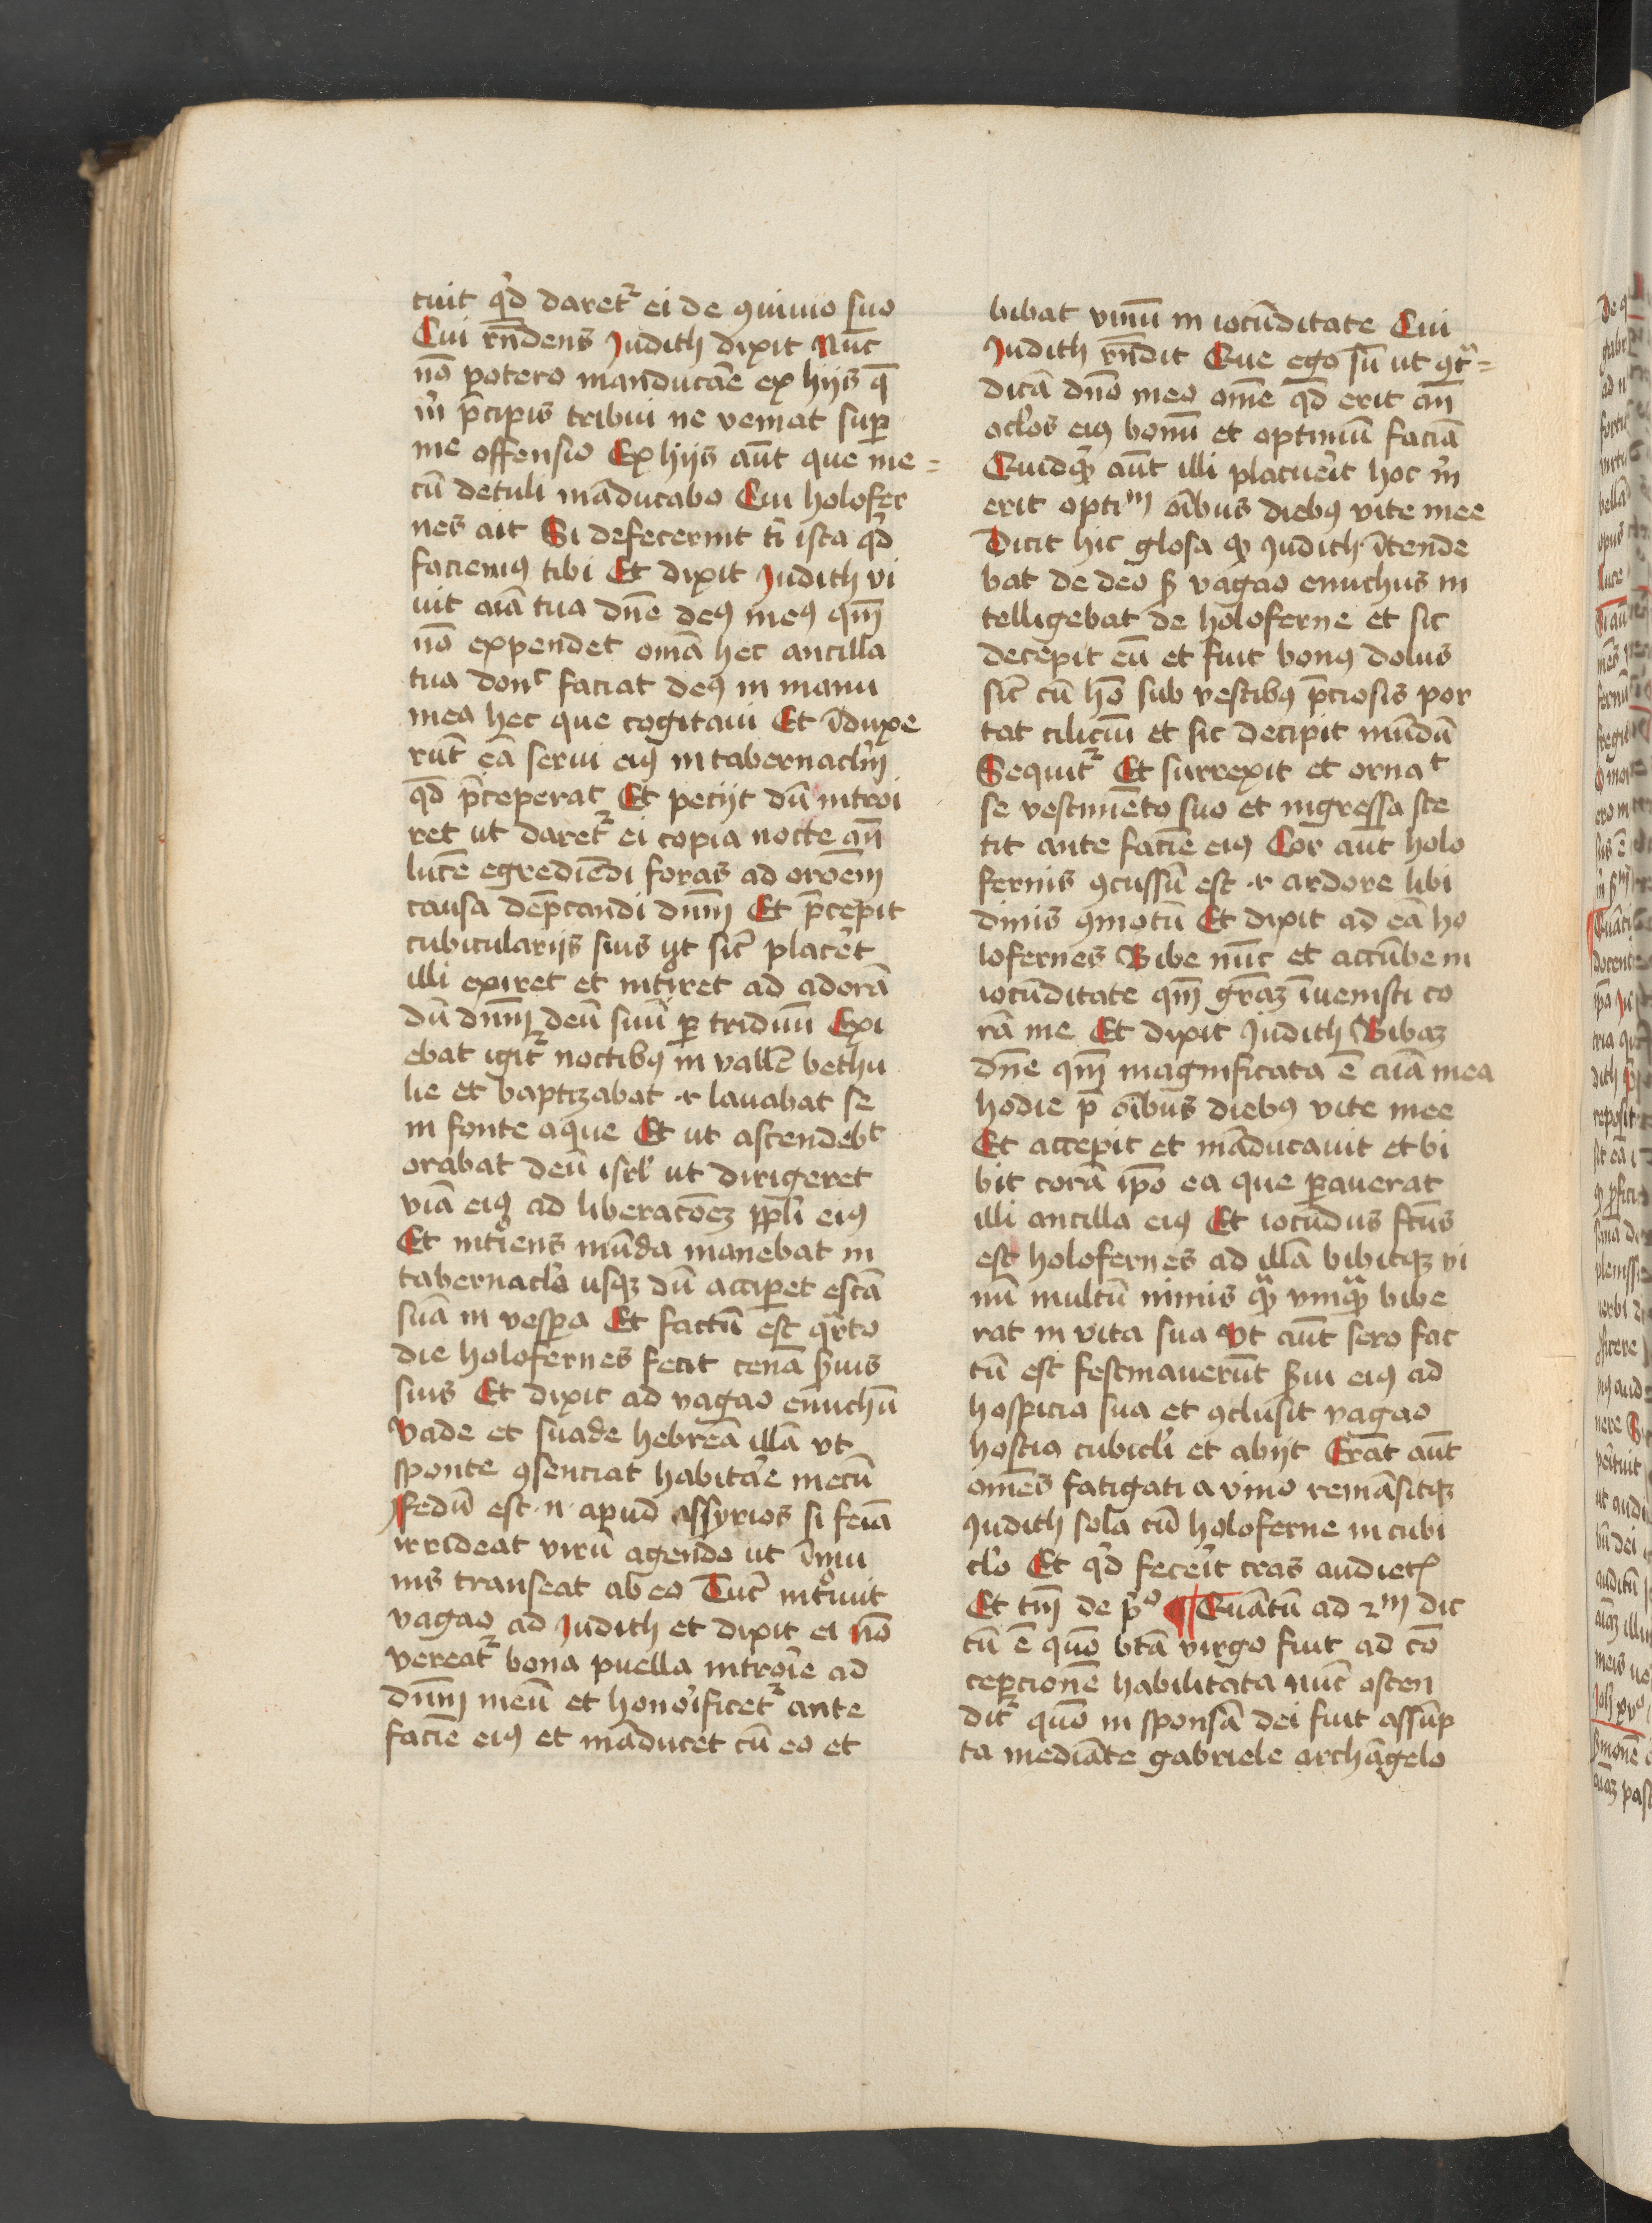 tuit qͥd daret᷑ ei de ꝯuiuio suo
Cui rn̄dens Judith dixit Nūc
nō potero manducāe ex hijs q̄
m̄ p̄cipis tribui ne veniat suꝑ
me offensio Ex hijs aūt que me=
cū detuli māducabo Cui holofer
nes ait Si defecerint t̄ ista qͥd
faciemꝰ tibi Et dixit Judith vi
uit aīa tua dn̄e deꝰ meꝰ qm̄
nō expendet omīa hec ancilla
tua donͨ faciat deꝰ in manu
mea hec que cogitaui Et īduxe
rūt eā serui eiꝰ in tabernacl'm̄
qd̄ p̄ceperat Et petijt dū introi
ret ut daret᷑ ei copia nocte an̄
lucē egrediēdi foras ad oroēm
causa dep̄candi dn̄m Et p̄cepit
cubicularijs suis ut sic̄ placet̄
illi exiret et intͦiret ad adorā
dū dn̄m deū suū ꝑ triduū Exi
ebat igit᷑ noctibꝰ in vallē bethu
lie et baptizabat ⁊ lauabat se
in fonte aque Et ut ascendebͭ
orabat deū isrl' ut dirigeret
viā eiꝰ ad liberacōeꝫ ppl'i eiꝰ
Et intͦiens mūda manebat in
tabernacl'o usqꝫ dū acciꝑet escā
suā in vesꝑa Et factū est qͣrto
die holofernes fecit cenā s̄uis
suis Et dixit ad vagao eunuchū
Vade et suade hebreā illā vt
sponte ꝯsenciat habitāe mecū
Fedū est .n. apud assyrios si feīa
irrideat virū agendo ut īmu
nis transeat ab eo Tūc intͦiuit
vagao ad Judith et dixit ei nō
vereat᷑ bona puella introīe ad
dn̄m meū et honoīficet᷑ ante
faciē eiꝰ et māducet cū eo et
bibat vinū in iocūditate Cui
Judith rn̄dit Que ego sū ut ꝯtͣ=
dicā dn̄o meo omē qd̄ erit an̄
ocl'os eiꝰ bonū et optimū faciā
Quidqͣꝫ aūt illi placueīt hoc m̄
erit optiᵐ oībus diebꝰ vite mee
Dicit hic glosa ꝙ Judith ītende
bat de deo s̄ vagao eunuchus in
telligebat de holoferne et sic
decepit eū et fuit bonꝰ dolus
sic̄ cū hō sub vestibꝰ p̄ciosis por
tat ciliciū et sic decipit mūdū
Sequit᷑ Et surrexit et ornaͭ
se vestimēto suo et ingressa ste
tit ante faciē eiꝰ Cor aūt holo
fernis ꝯcussū est ⁊ ardore libi
dinis ꝯmotū Et dixit ad eā ho
lofernes Bibe nūc et accūbe in
iocūditate qm̄ grāꝫ īuenisti co
rā me Et dixit Judith Bibaꝫ
dn̄e qm̄ magnificata ē aīa mea
hodie p̄ oībus diebꝰ vite mee
Et accepit et māducauit et bi
bit corā ip̄o ea que ꝑauerat
illi ancilla eiꝰ Et iocūdus fc̄us
est holofernes ad illā bibitqꝫ vi
nū multū nimis qͣꝫ vnqͣꝫ bibe
rat in vita sua Vt aūt sero fac
tū est festinauerūt s̄ui eiꝰ ad
hospicia sua et ꝯclusit vagao
hostia cubicl'i et abijt Erāt aūt
omēs fatigati a vino remāsitqꝫ
Judith sola cū holoferne in cubi
cl'o Et qͥd feceīt cras audietꝭ
Et tm̄ de pͦ ¶ Quātū ad 2ᵐ dic
tū ē quō bt̄a virgo fuit ad cō
cepcionē habilitata nūc osten
dit᷑ quō in sponsā dei fuit assūp
ta mediāte gabriele archāgelo